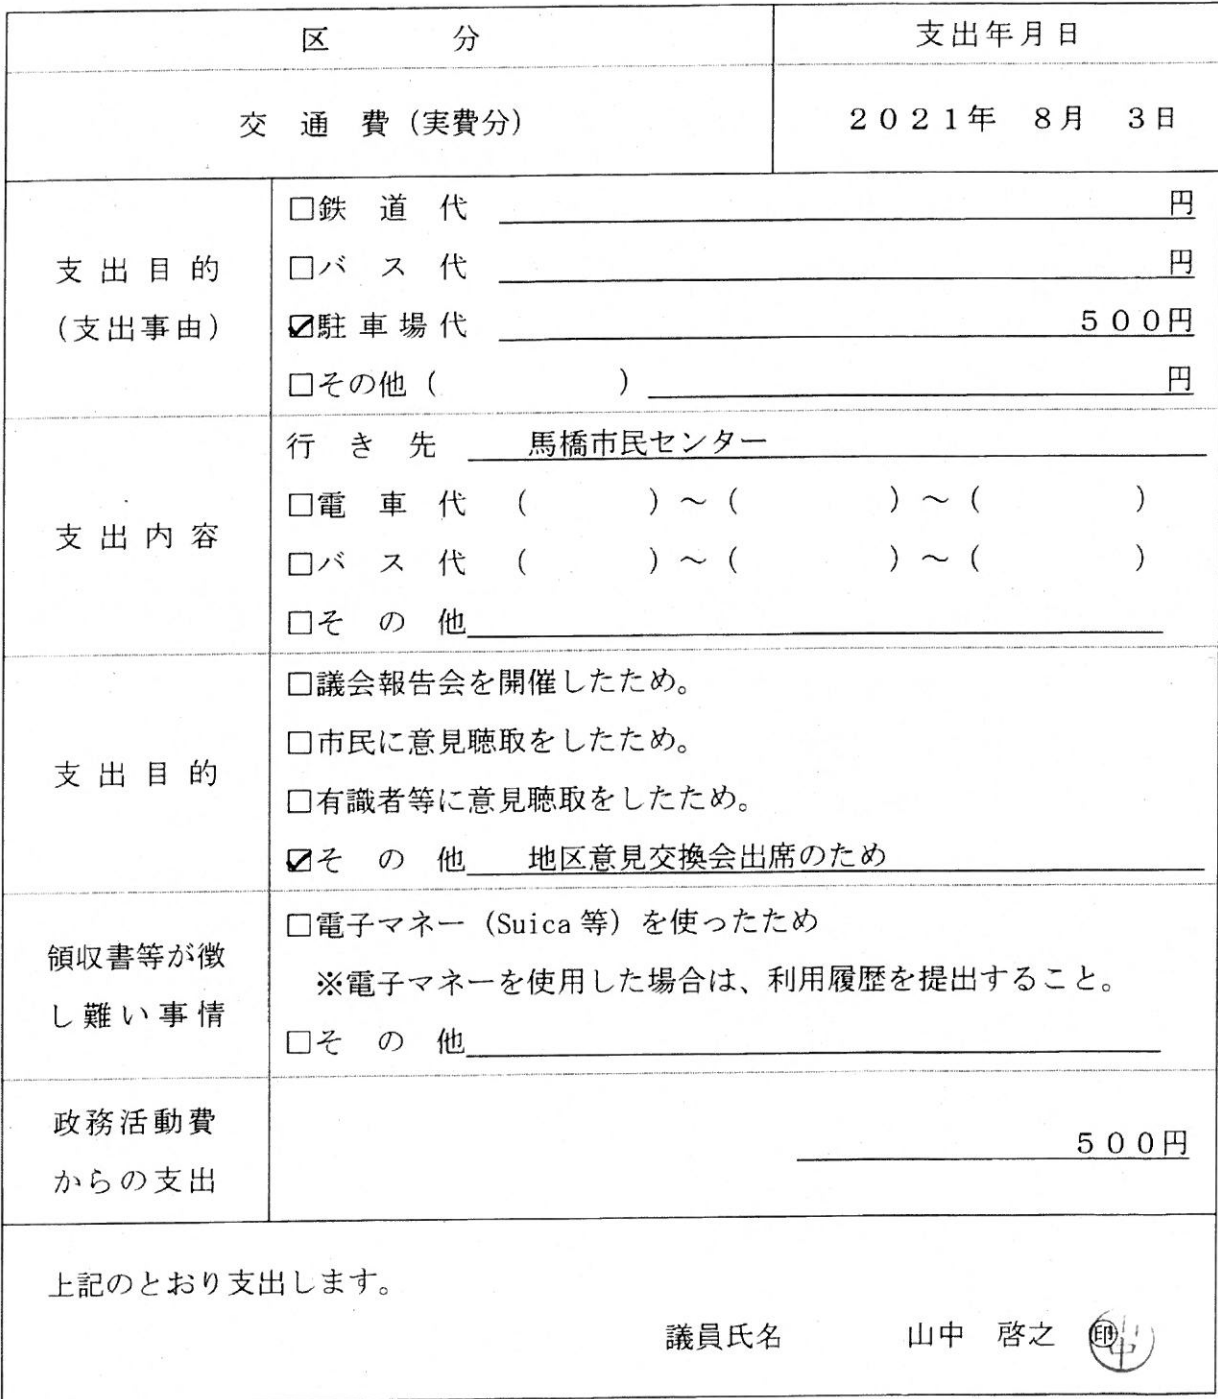 区　分
支出年月日
交　通　費（実費分）
２０２１年　８月　３日
支出目的
（支出事由）
□鉄　道　代　円
□バ　ス　代　円
☑駐車場代　５００円
□その他（　　　）　円
支出内容
行　き　先　馬橋市民センター
□電　車　代　（　　　）～（　　　）～（　　　）
□バ　ス　代　（　　　）～（　　　）～（　　　）
□そ　の　他
支出目的
□議会報告会を開催したため。
□市民に意見聴取をしたため。
□有識者等に意見聴取をしたため。
☑そ　の　他　地区意見交換会出席のため
領収書等が徴
し難い事情
□電子マネー（Suica等）を使ったため
※電子マネーを使用した場合は、利用履歴を提出すること。
□そ　の　他
政務活動費
からの支出
５００円
上記のとおり支出します。
議員氏名　山中　啓之　㊞
山中